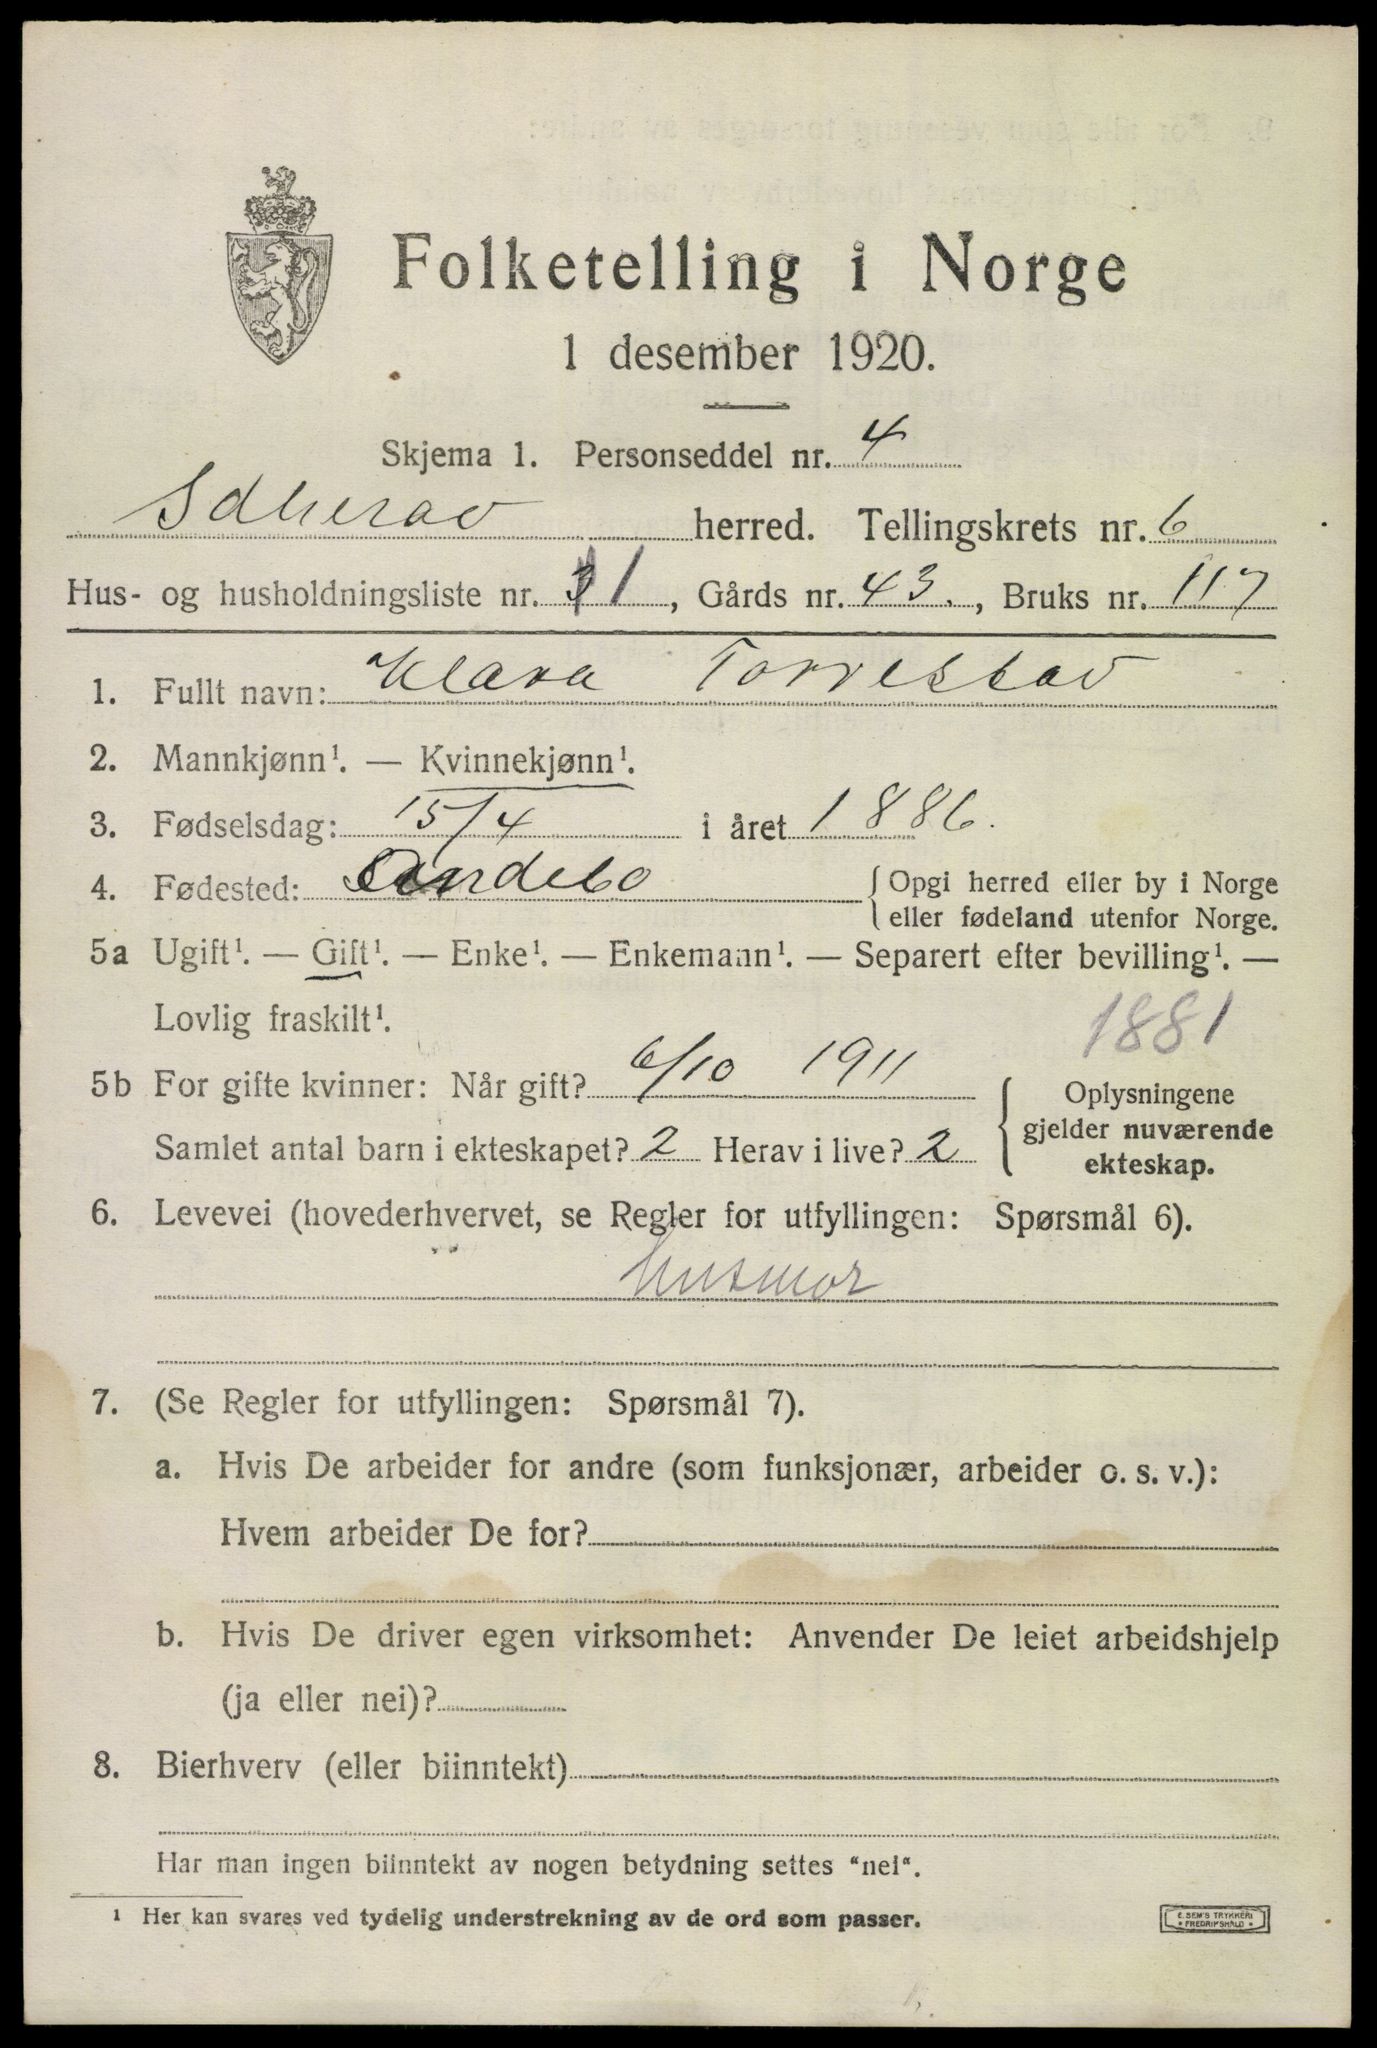 Folketelling i Norge
1 desember 1920.
Skjema 1. Personseddel nr. 4
Idherad herred. Tellingskrets nr. 6
Hus- og husholdningsliste nr. 31, Gårds nr. 43., Bruks nr. 117
1. Fullt navn: Klara Torrestad
2. Mannkjønn¹. — Kvinnekjønn¹.
3. Fødselsdag: 15/4 i året 1886.
4. Fødested: Andebo {Opgi herred eller by i Norge
eller fødeland utenfor Norge.
5a Ugift¹. — Gift¹. — Enke¹. — Enkemann¹. — Separert efter bevilling¹. —
Lovlig fraskilt¹.
1881
5b For gifte kvinner: Når gift? 6/10 1911
Samlet antal barn i ekteskapet? 2 Herav i live? 2
Oplysningene
gjelder nuværende
ekteskap.
6. Levevei (hovederhvervet, se Regler for utfyllingen: Spørsmål 6).
Husmor
7. (Se Regler for utfyllingen: Spørsmål 7).
a. Hvis De arbeider for andre (som funksjonær, arbeider o. s. v.):
Hvem arbeider De for?
b. Hvis De driver egen virksomhet: Anvender De leiet arbeidshjelp
(ja eller nei)?
8. Bierhverv (eller biinntekt)
Har man ingen biinntekt av nogen betydning settes "nei".
¹ Her kan svares ved tydelig understrekning av de ord som passer.
E. SEM'S TRYKKERI
FREDRIKSHALD